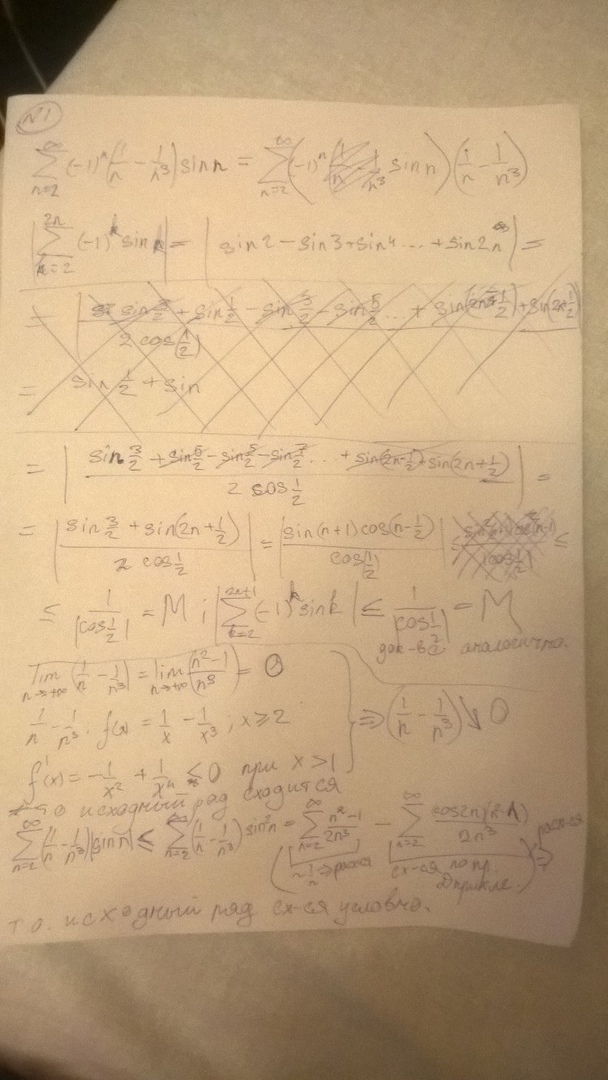 №1
∑_{n=2}^{∞} (-1)^n (1/n - 1/n³) sin n = ∑_{n=2}^{∞} ((-1)^n sin n) (1/n - 1/n³)
|∑_{k=2}^{2n} (-1)^k sin k| = |sin 2 - sin 3 + sin 4 ... + sin 2n| =
= | sin 3/2 + sin 1/2 - sin 3/2 - sin 5/2 ... + sin(2n - 1/2) + sin(2n + 1/2) / 2 cos(1/2) |
= sin 1/2 + sin
= | (sin 3/2 + sin 5/2 - sin 5/2 - sin 7/2 ... + sin(2n - 1/2) + sin(2n + 1/2)) / (2 cos 1/2) | =
= | (sin 3/2 + sin(2n + 1/2)) / (2 cos 1/2) | = | sin(n+1) cos(n - 1/2) / cos(1/2) | = ≤
≤ 1/|cos 1/2| = M ; |∑_{k=2}^{2n+1} (-1)^k sin k| ≤ 1/|cos 1/2| = M
док-ва аналогично.
lim_{n→+∞} (1/n - 1/n³) = lim_{n→+∞} (n²-1)/(n³) = 0
1/n - 1/n³. f(x) = 1/x - 1/x³ ; x ≥ 2 } ⇒ (1/n - 1/n³) ↘ 0
f'(x) = -1/x² + 1/x⁴ ≤ 0 при x > 1
т.о исходный ряд сходится
∑_{n=2}^{∞} (1/n - 1/n³) |sin n| ≤ ∑_{n=2}^{∞} (1/n - 1/n³) sin² n = ∑_{n=2}^{∞} (n²-1)/(2n³) - ∑_{n=2}^{∞} cos 2n (n²-1)/(2n³) ⇒ расх-ся
(~ 1/n ⇒ расх-ся сх-ся по пр. Дирихле.)
т.о. исходный ряд сх-ся условно.